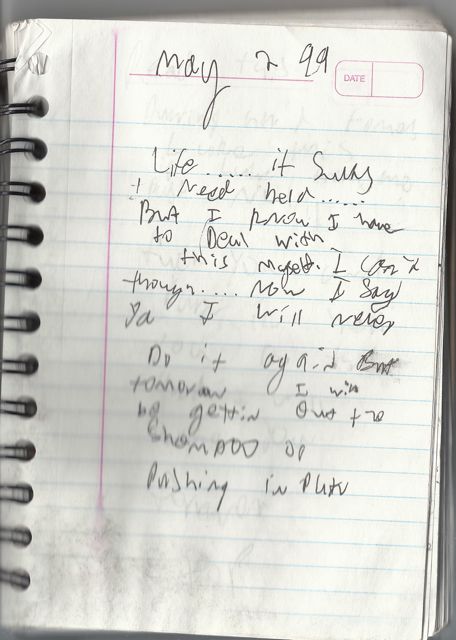 May 2 99
DATE
Life..... it sucks
I need held......
But I know I have
to Deal with
this myself. I can't
though.... now I say
Ya I will never
Do it again But
tomorrow I will
be gettin out the
Shampoo or
Pushing in